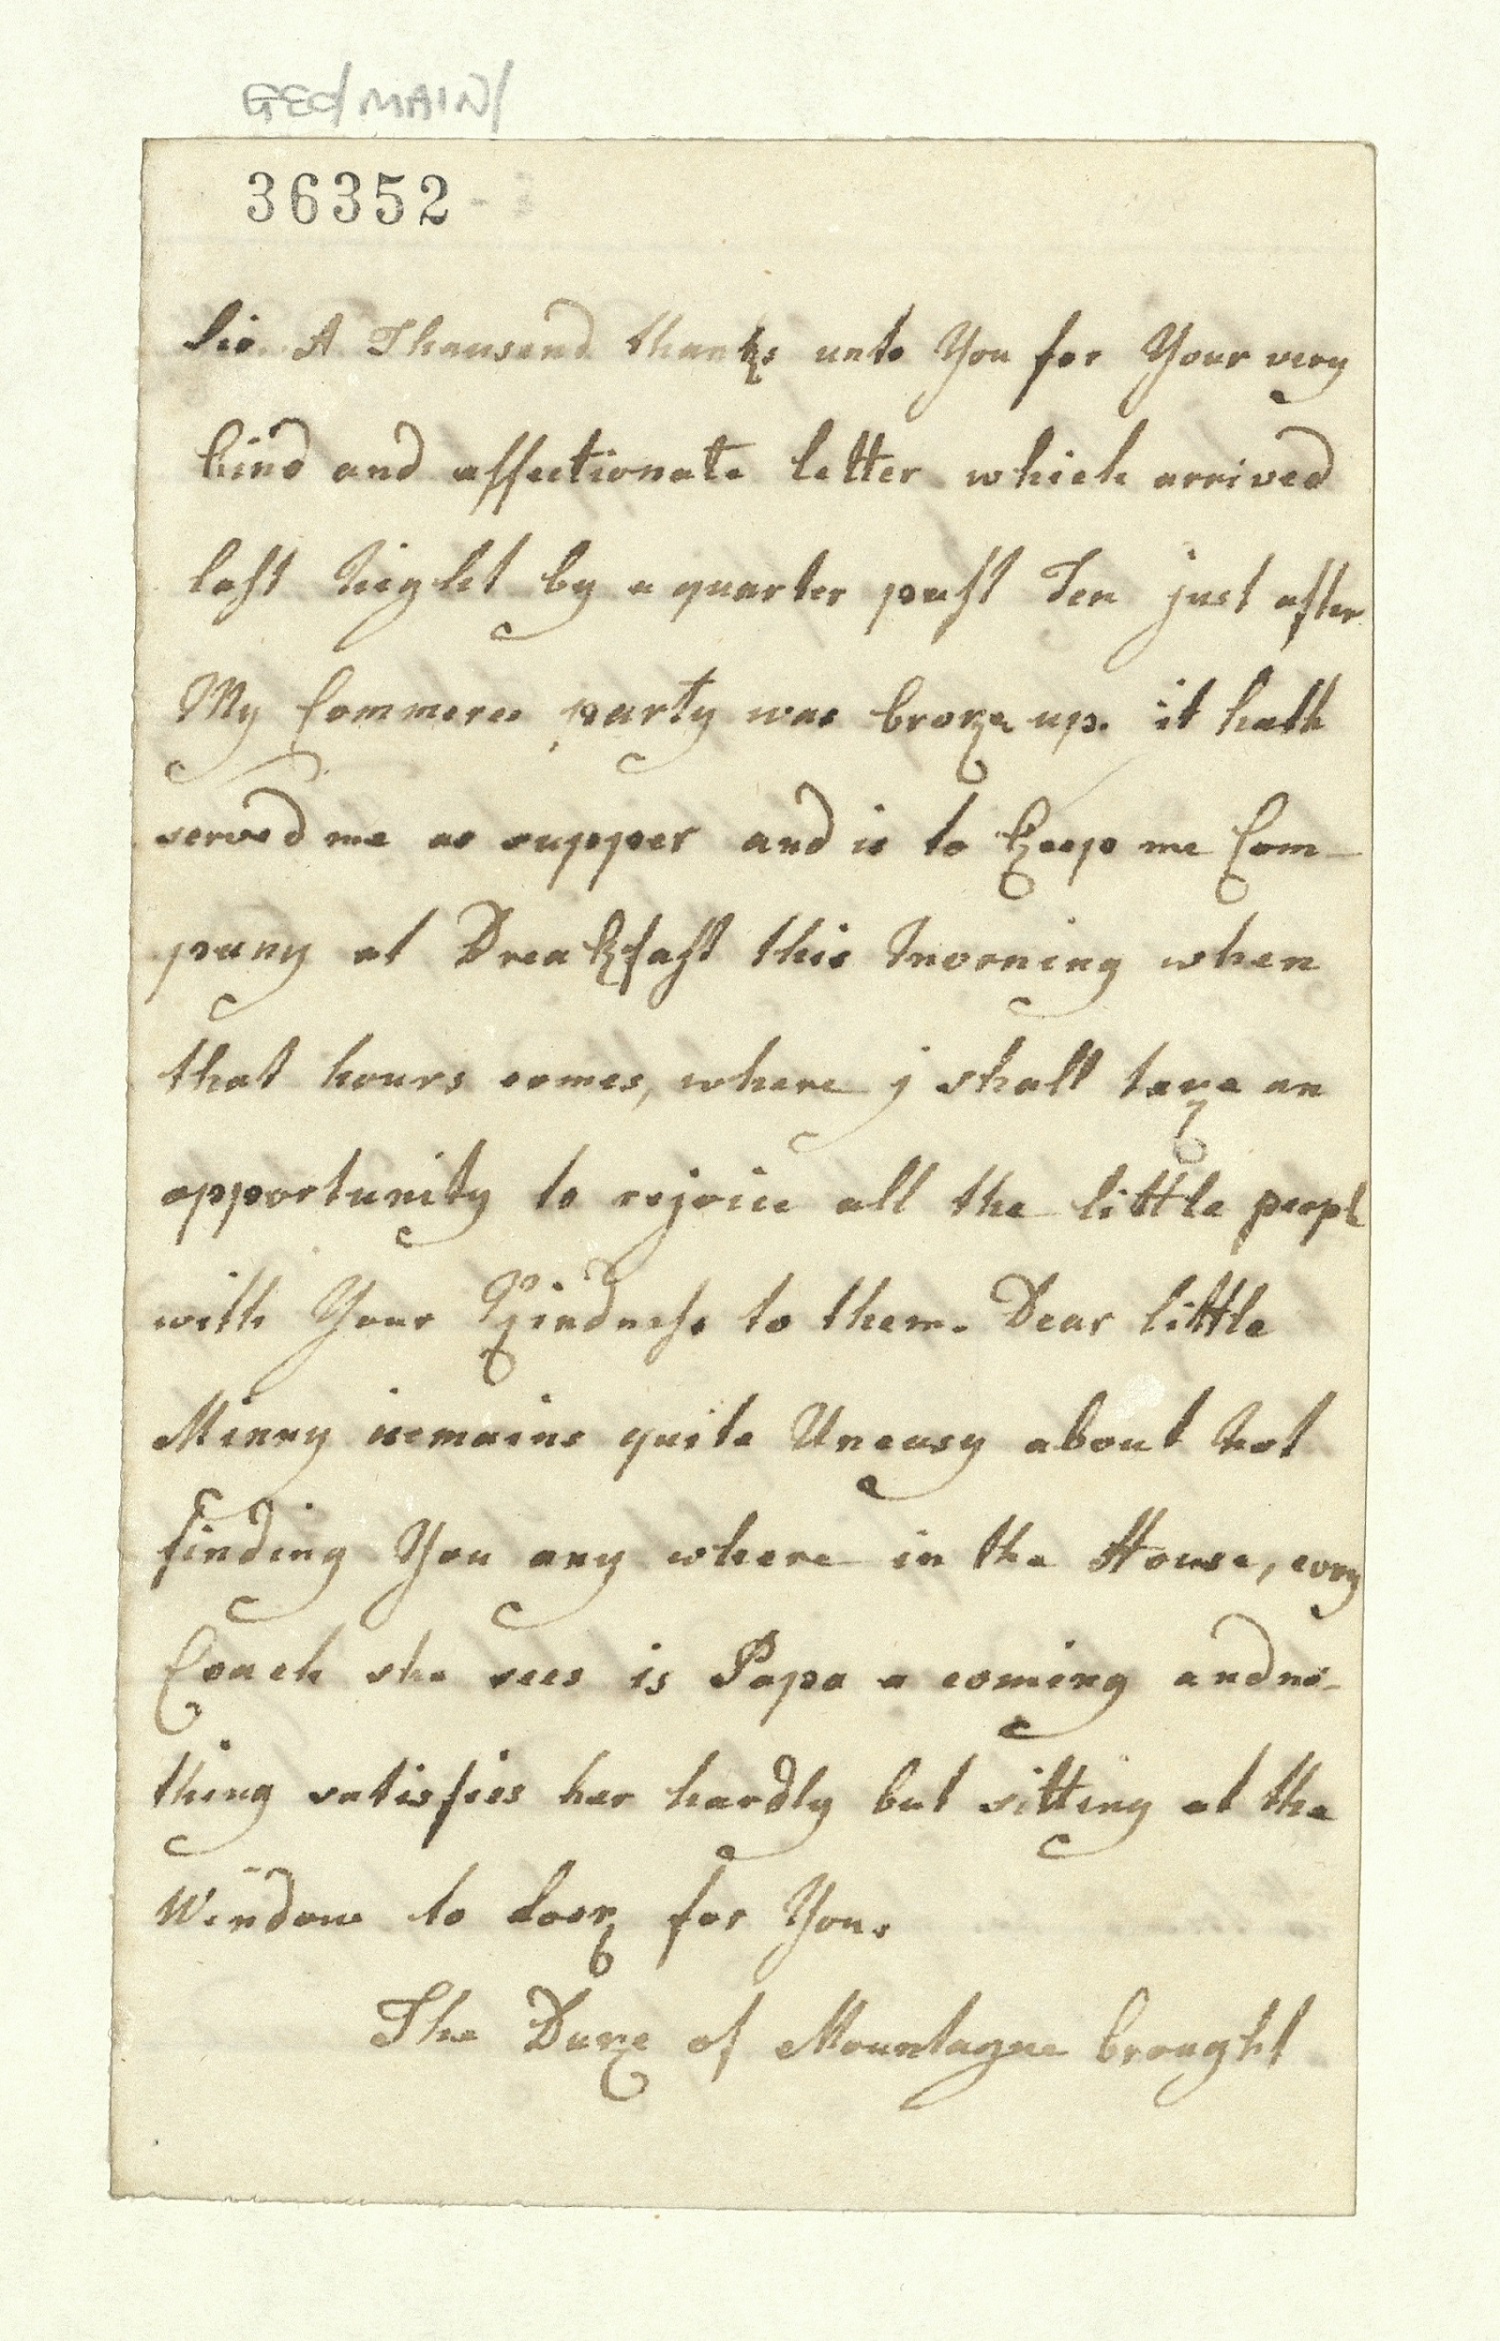 GEO/MAIN/
36352
Sir. A Thausend thanks unto You for Your very
kind and affectionate letter which arrived
last Night by a quarter past Ten just after
My Commerce party was broke up. it hath
served me as supper and is to keep me Com-
pany at Breakfast this Morning when
that hours comes, where j shall take an
opportunity to rejoice all the little peopl
with Your Kindness to them. Dear little
Minny remains quite Uneasy about Not
finding You any where in the House, evry
Coach she sees is Papa a coming and no-
thing satisfies her hardly but sitting at the
Window to look for You.
The Duke of Mountague brought